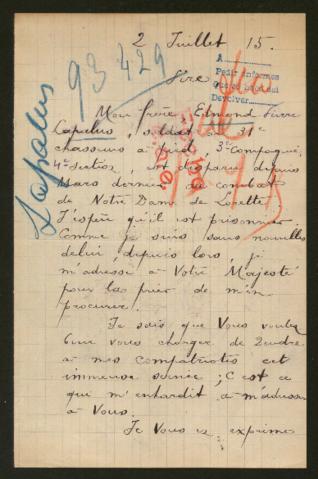 2 Juillet 15.
93429
Sire
A
Pedir informes
Devolver
Lapalus
Mon frère, Edmond Pierre
Lapalus, soldat au 31e
chasseurs à pied, 3e Compagnie,
4e Section, est disparu depuis
Mars dernier, au combat
de Notre Dame de Lorette.
J'espère qu'il est prisonnier.
Comme je suis sans nouvelles
de lui, depuis lors, je
m'adresse à Votre Majesté
pour la prier de m'en
procurer.
Je sais que Vous voulez
bien vous charger de rendre
à mes compatriotes cet
immense service; C'est ce
qui m'enhardit à m'adresser
à Vous.
Je Vous en exprime